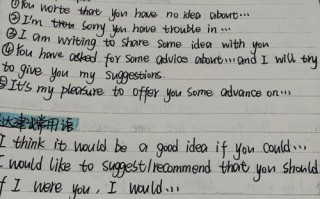 ①You worte that you have no idea about…
②I'm sorry you have trouble in…
③I am writing to share some idea with you
④You have asked for some advice about…and I will try
to give you my suggestions.
⑤It's my pleasure to offer you some advance on…
达建议常用语
I think it would be a good idea if you could…
I would like to suggest/recommend that you should
If I were you, I would…